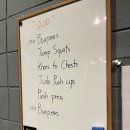 "200"
Burpees
Jump Squats
Knees to Chests
Judo Push ups
Push press
Burpees